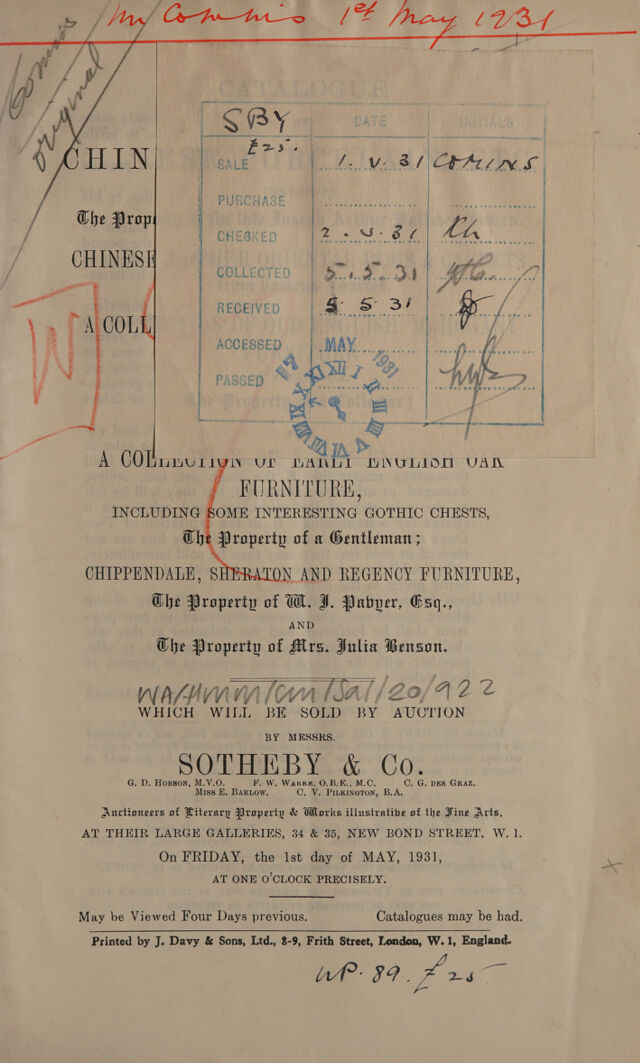 Mr Comins 1st May 1931
Comins
original
CATALOGUE
SBY DATE INITIALS
£25.
SALE 1. V. 31 COMINS
PURCHASE
CHECKED 2. 5. 31
COLLECTED 5. 5. 31
RECEIVED 5 5 31
ACCESSED MAY 1931
PASSED
XII I II III V VI VII VIII IX X XI
CHIN
The Prop
CHINESE
A COLL
W
A COLLECTION OF EARLY ENGLISH OAK
FURNITURE,
INCLUDING SOME INTERESTING GOTHIC CHESTS,
The Property of a Gentleman;
CHIPPENDALE, SHERATON AND REGENCY FURNITURE,
The Property of W. J. Pabyer, Esq.,
AND
The Property of Mrs. Julia Benson.
WA/HMM/CM/Sal/20/922
WHICH WILL BE SOLD BY AUCTION
BY MESSRS.
SOTHEBY & Co.
G. D. HOBSON, M.V.O. F. W. WARRE, O.B.E., M.C. C. G. DES GRAZ.
MISS E. BARLOW. C. V. PILKINGTON, B.A.
Auctioneers of Literary Property & Works illustrative of the Fine Arts,
AT THEIR LARGE GALLERIES, 34 & 35, NEW BOND STREET, W. 1.
On FRIDAY, the 1st day of MAY, 1931,
AT ONE O'CLOCK PRECISELY.
May be Viewed Four Days previous. Catalogues may be had.
Printed by J. Davy & Sons, Ltd., 8-9, Frith Street, London, W. 1, England.
WP. 89. £25